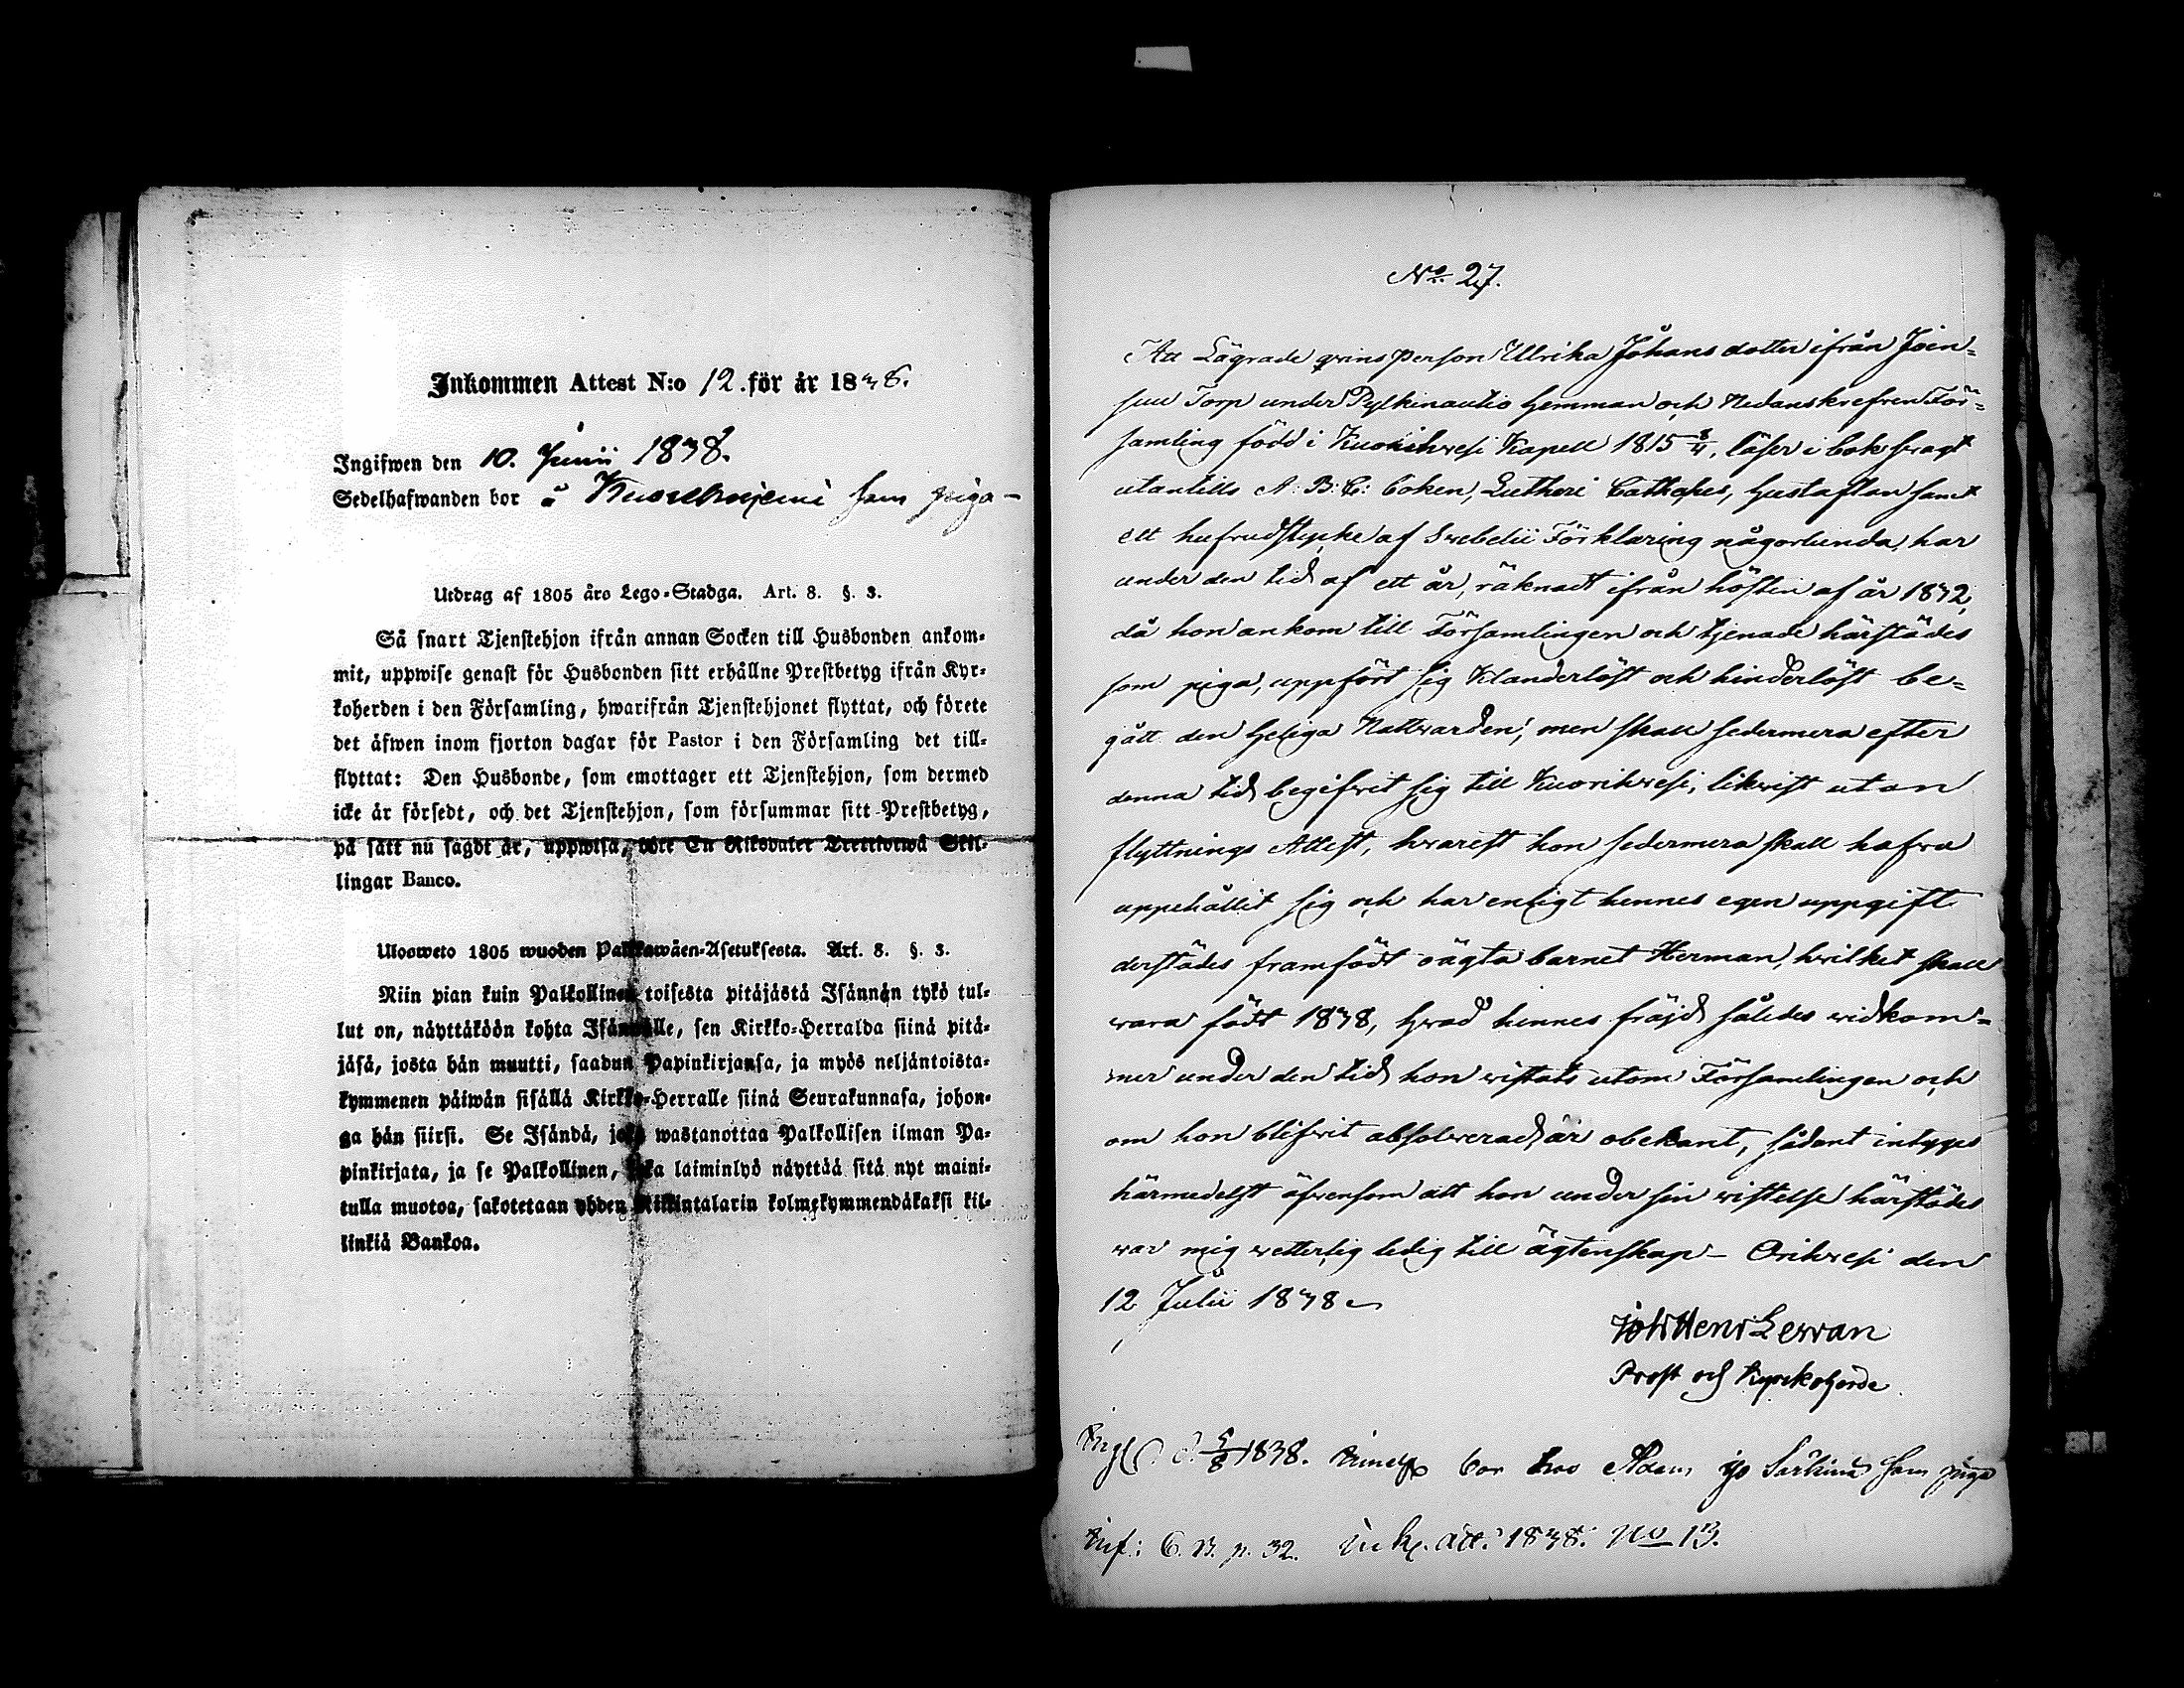 Inkommen Attest N:o 12. för år 1838.
Ingifwen den 10. Junii 1838.
Sedelhafwanden bor å Kuorehniemi som piga –
Utdrag af 1805 års Lego-Stadga. Art. 8. §. 3.
Så snart Tjenstehjon ifrån annan Socken till Husbonden ankom-
mit, uppwise genast för Husbonden sitt erhållne Prestbetyg ifrån Kyr-
koherden i den Församling, hwarifrån Tjenstehjonet flyttat, och förete
det äfwen inom fjorton dagar för Pastor i den Församling det till-
flyttat: Den Husbonde, som emottager ett Tjenstehjon, som dermed
icke är försedt, och det Tjenstehjon, som försummar sitt Prestbetyg,
på sätt nu sagdt är, uppwisa, böte En Riksdaler Trettiotwå Skil-
lingar Banco.
Ulosweto 1805 wuoden Palkkawäen-Asetuksesta. Art. 8. §. 3.
Niin pian kuin Palkollinen toisesta pitäjästä Isännän tykö tul-
lut on, näyttäköön kohta Isännälle, sen Kirkko-Herralda siinä pitä-
jäsä, josta hän muutti, saadun Papinkirjansa, ja myös neljäntoista-
kymmenen päiwän sisällä Kirkko-Herralle siinä Seurakunnasa, johon-
ga hän siirsi. Se Isändä, joka wastanottaa Palkollisen ilman Pa-
pinkirjata, ja se Palkollinen, joka laiminlyö näyttää sitä nyt maini-
tulla muotoa, sakotetaan yhden Rikintalarin kolmekymmendäkaksi kil-
linkiä Bankoa.
No 27.
Att Lägrade qvinsperson Ullrika Johansdotter ifrån Join-
suu Torp under Pylkinautio Hemman och Nedanskrefven För-
samling född i Kuorihwesi Kapell 1815 8/4, läser i bok swagt
utantills A: B: C: boken, Lutheri Catheches, Hustaflan samt
ett hufwudstycke af Svebelii Förklaring någorlunda, har
under den tid af ett år, räknadt ifrån hösten af år 1832,
då hon ankom till Församlingen och tjenade härstädes
som piga, uppfört sig Klanderlöst och hinderlöst be-
gått den Heliga Nattvarden; men skall sedermera efter
denna tid begifvit sig till Kuorihwesi, likvist utan
flyttnings Attest, hvarest hon sedermera skall hafva
uppehållit sig och har enligt hennes egen uppgift
derstädes framfödt oägta barnet Herman, hvilket skall
vara födt 1838, Hvad hennes fräjd således vidkom-
mer under den tid hon vistats utom Församlingen och
om hon blifvit absolverad, är obekant, sådant intygas
härmedelst äfvensom att hon under sin vistelse härstädes
var mig vetterlig ledig till ägtenskap – Orihvesi den
12 Julii 1838
Joh Henr Lervan
Prost och Kyrckoherde
d. 5/8 1838. bor hos Adam Särkinä som piga
Inf: C. B. p. 32. Ink. att. 1838. No 13.